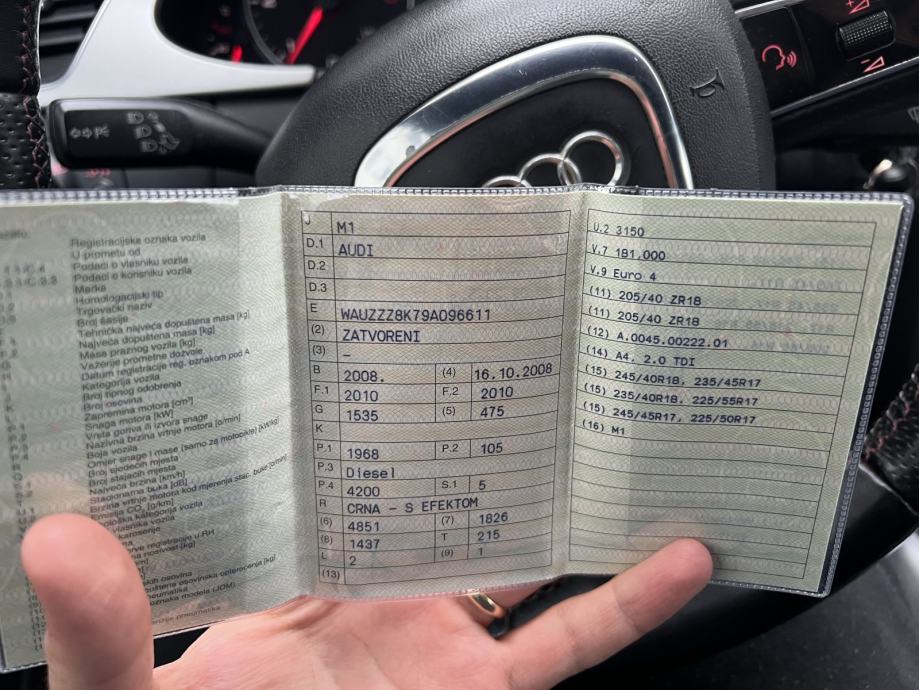 Registracijska oznaka vozila
U prometu od
Podaci o vlasniku vozila
Podaci o korisniku vozila
Marka
Homologacijski tip
Trgovački naziv
Broj šasije
Tehnička najveća dopuštena masa [kg]
Najveća dopuštena masa [kg]
Masa praznog vozila [kg]
Važenje prometne dozvole
Datum registracije reg. oznakom pod A
Kategorija vozila
Broj tipnog odobrenja
Broj osovina
Zapremina motora [cm³]
Snaga motora [kW]
Vrsta goriva ili izvora snage
Nazivna brzina vrtnje motora [o/min]
Boja vozila
Omjer snage i mase (samo za motocikle) [kW/kg]
Broj sjedećih mjesta
Broj stajaćih mjesta
Najveća brzina [km/h]
Stacionarna buka [dB]
Brzina vrtnje motora kod mjerenja stac. buke [o/min]
Emisija CO₂ [g/km]
kategorija vozila
J M1
D.1 AUDI
D.2
D.3
E WAUZZZ8K79A096611
(2) ZATVORENI
(3) –
B 2008. (4) 16.10.2008
F.1 2010 F.2 2010
G 1535 (5) 475
K
P.1 1968 P.2 105
P.3 Diesel
P.4 4200 S.1 5
R CRNA – S EFEKTOM
(6) 4851 (7) 1826
(8) 1437 T 215
L 2 (9) 1
(13)
U.2 3150
V.7 181.000
V.9 Euro 4
(11) 205/40 ZR18
(11) 205/40 ZR18
(12) A.0045.00222.01
(14) A4, 2.0 TDI
(15) 245/40R18, 235/45R17
(15) 235/40R18, 225/55R17
(15) 245/45R17, 225/50R17
(16) M1